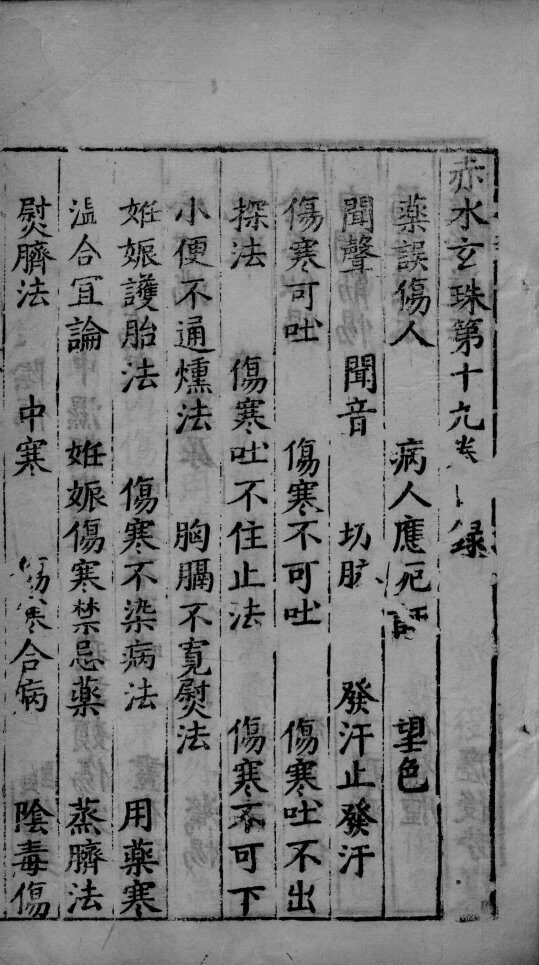 赤水玄珠第十九卷目錄
藥誤傷人 病人應死 望色
聞聲 聞音 切脉 發汗止發汗
傷寒可吐 傷寒不可吐 傷寒吐不出
探法 傷寒吐不住止法 傷寒不可下
小便不通燻法 胸膈不寬熨法
姙娠護胎法 傷寒不染病法 用藥寒
温合宜論 姙娠傷寒禁忌藥 蒸臍法
熨臍法 中寒 傷寒合病 陰毒傷